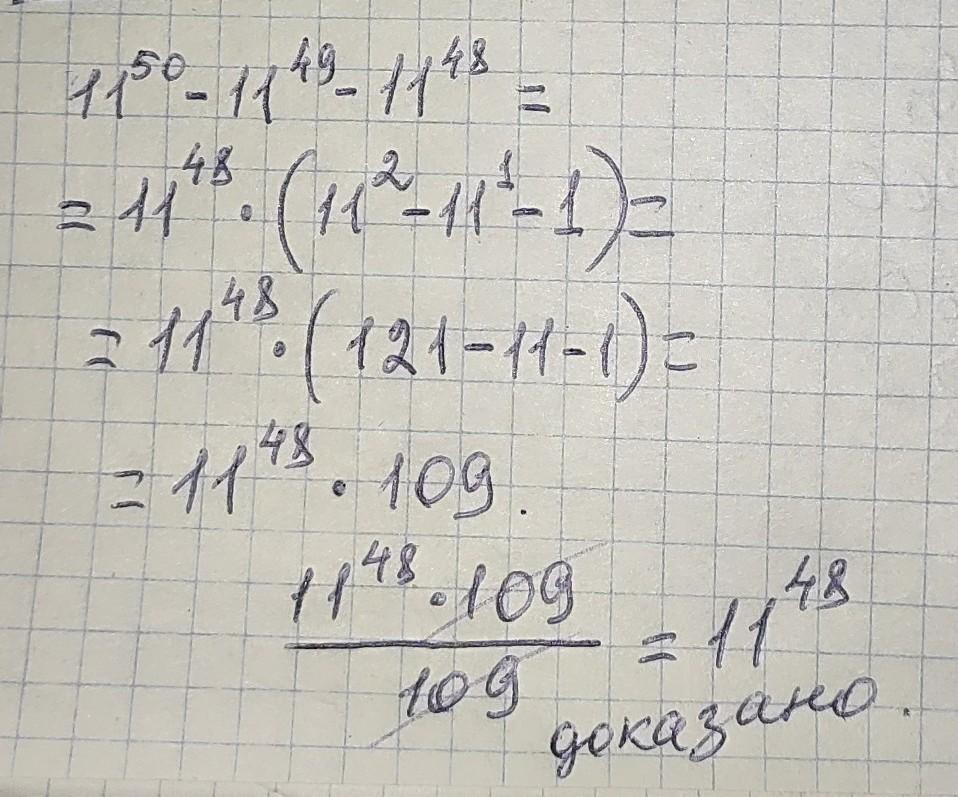 11⁵⁰ - 11⁴⁹ - 11⁴⁸ =
= 11⁴⁸ · (11² - 11¹ - 1) =
= 11⁴⁸ · (121 - 11 - 1) =
= 11⁴⁸ · 109.
11⁴⁸ · 109
109
= 11⁴⁸
доказано.